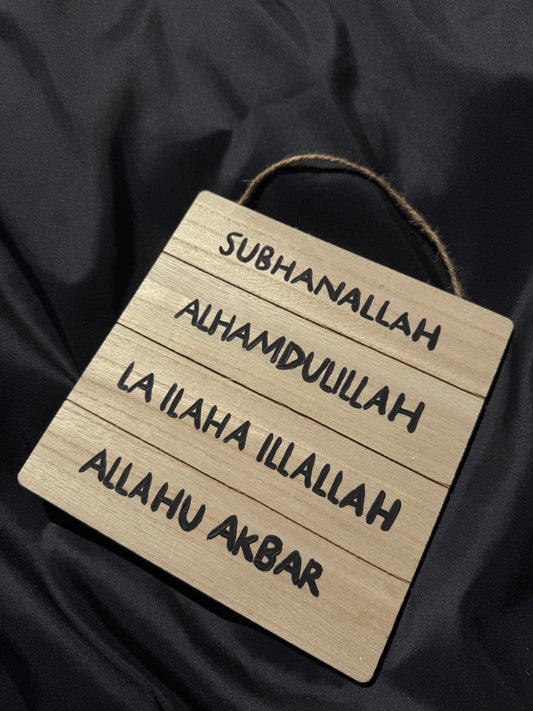 SUBHANALLAH
ALHAMDULILLAH
LA ILAHA ILLALLAH
ALLAHU AKBAR